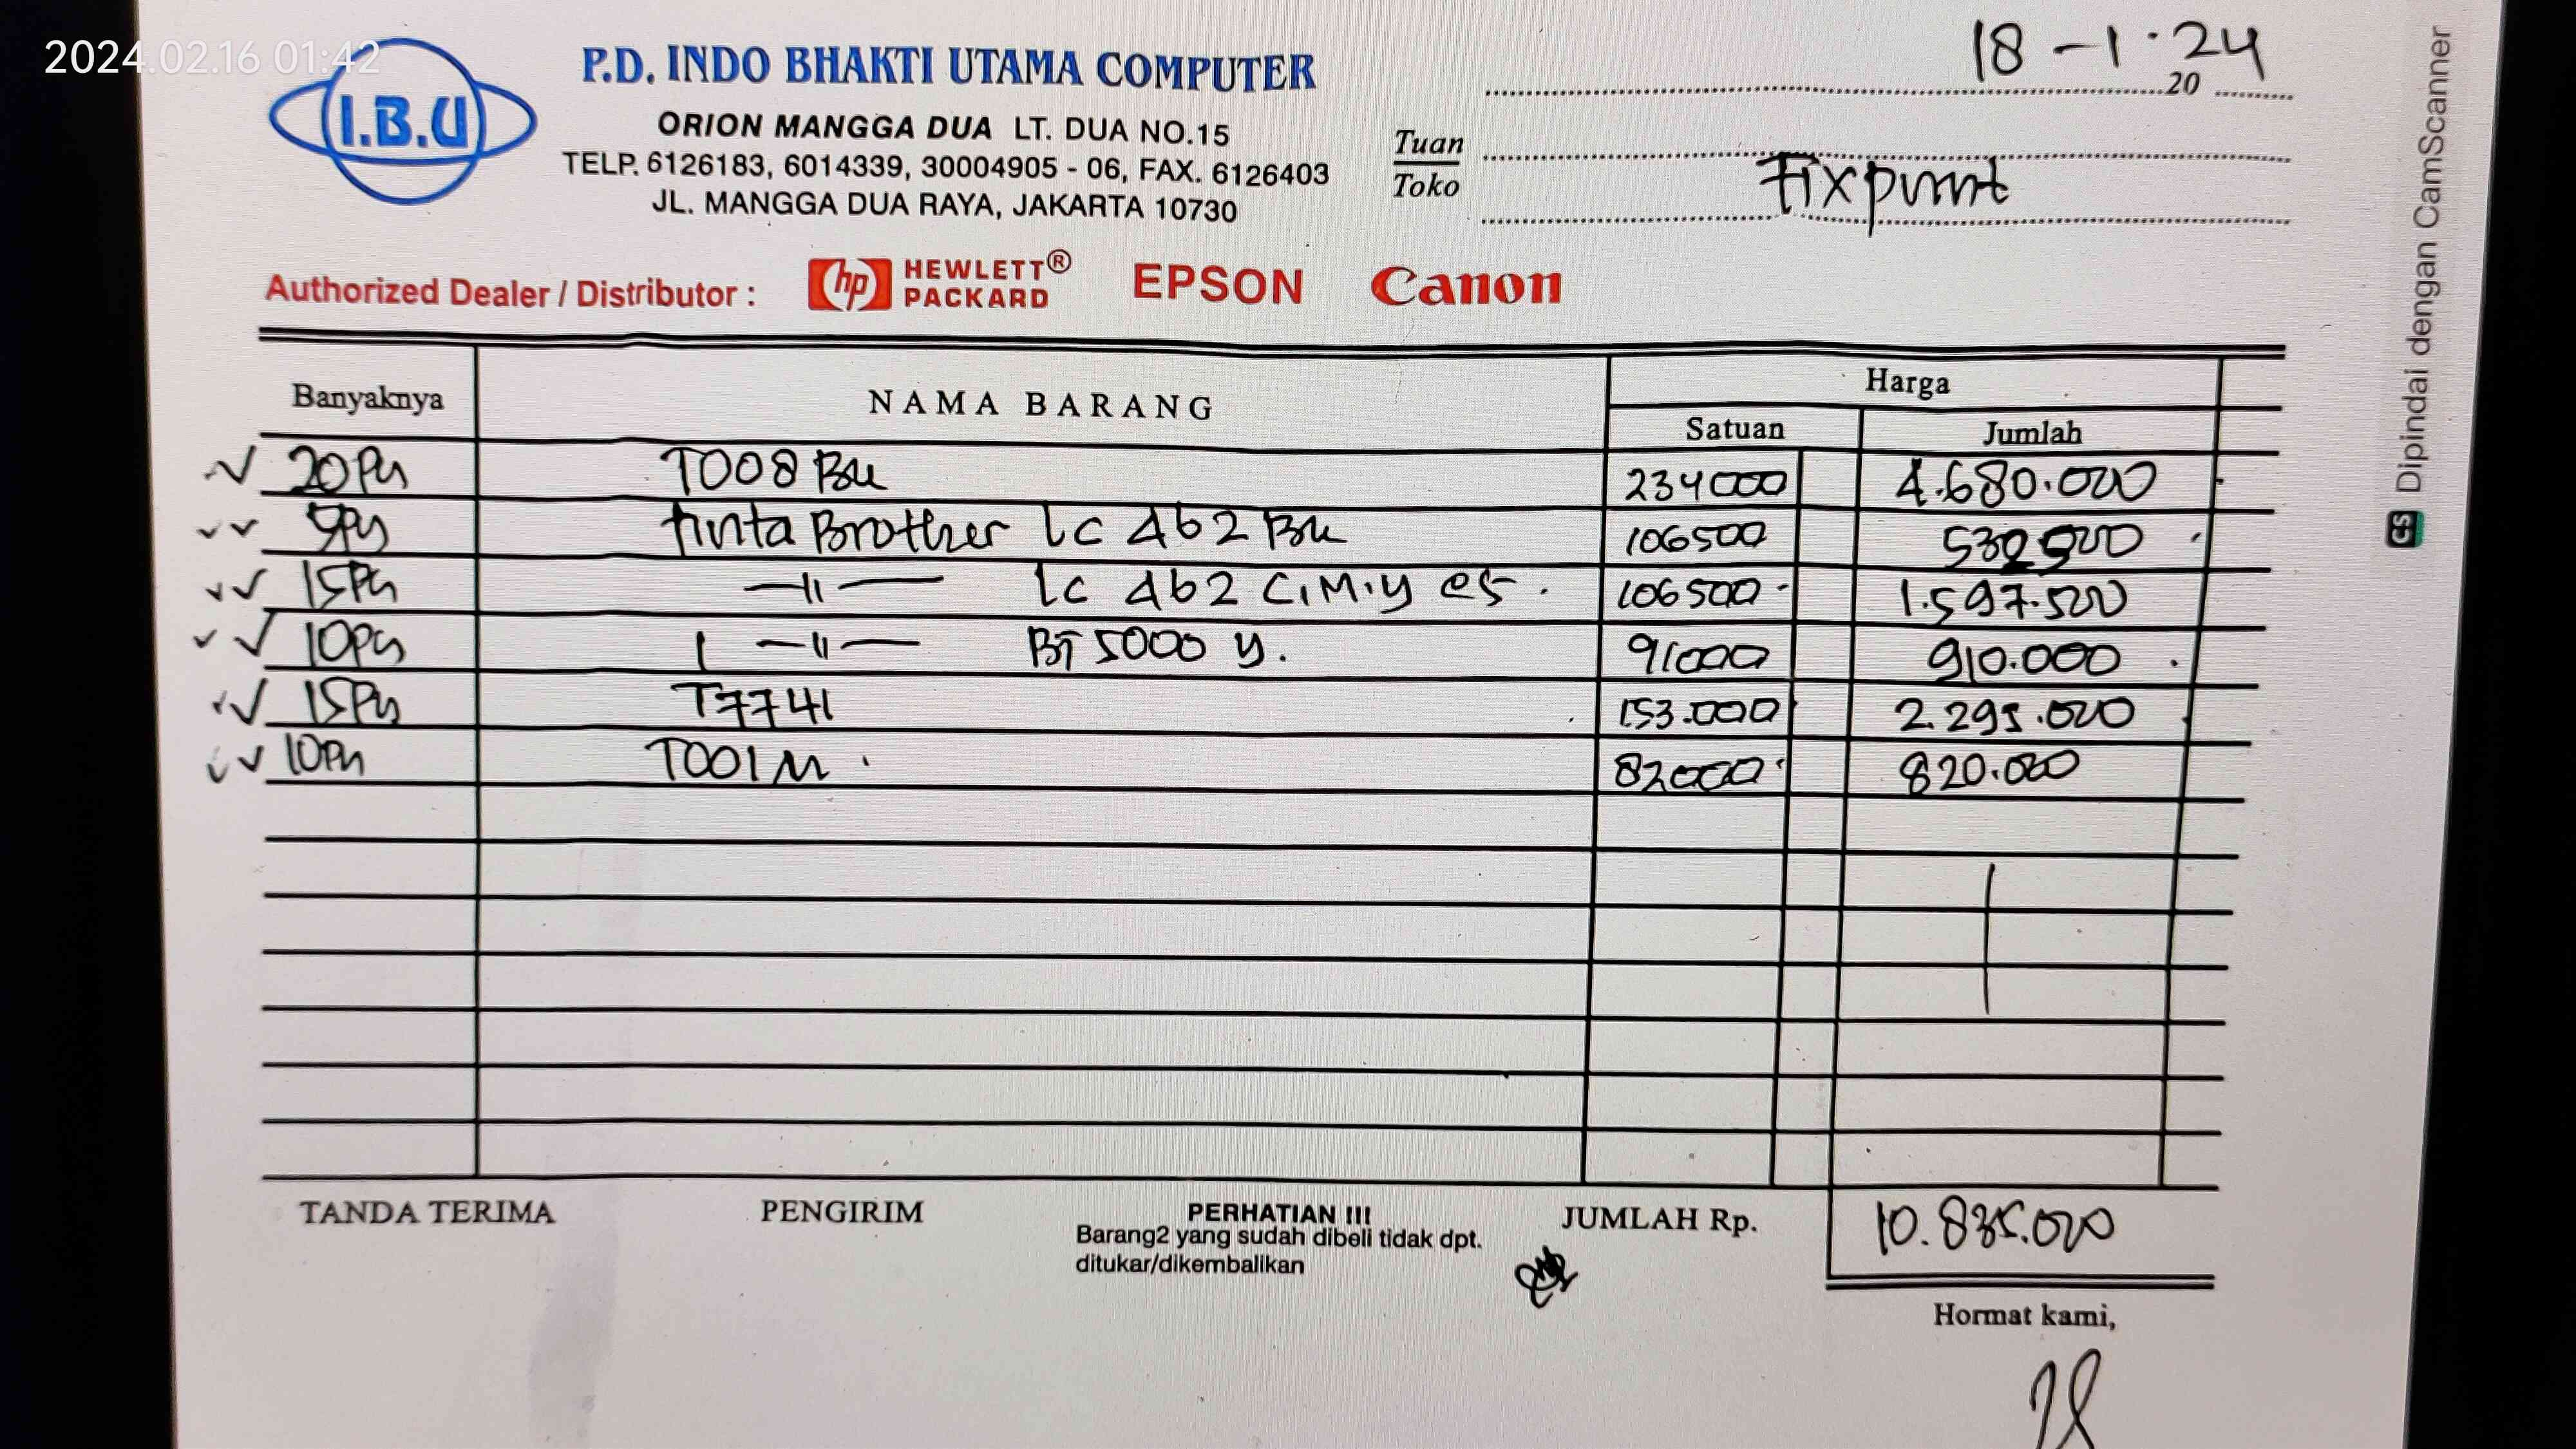 2024.02.16 01:42
I.B.U
P.D. INDO BHAKTI UTAMA COMPUTER
ORION MANGGA DUA LT. DUA NO.15
TELP. 6126183, 6014339, 30004905 - 06, FAX. 6126403
JL. MANGGA DUA RAYA, JAKARTA 10730
18 - 1 - 24
20
Tuan
Toko
Fixprint
Authorized Dealer / Distributor : hp HEWLETT® PACKARD EPSON Canon
Banyaknya NAMA BARANG Harga
Satuan Jumlah
20 Pcs T008 BK 234000 4.680.000
5 Pcs tinta Brother Lc 462 BK 106500 532500
15 Pcs —〃— Lc 462 C,M,Y @5. 106500 1.597.500
10 Pcs —〃— BT 5000 Y. 91000 910.000
15 Pcs T7741 153.000 2.295.000
10 Pcs T001 M. 82000 820.000
TANDA TERIMA PENGIRIM PERHATIAN !!! JUMLAH Rp. 10.835.000
Barang2 yang sudah dibeli tidak dpt.
ditukar/dikembalikan
Hormat kami,
CS Dipindai dengan CamScanner